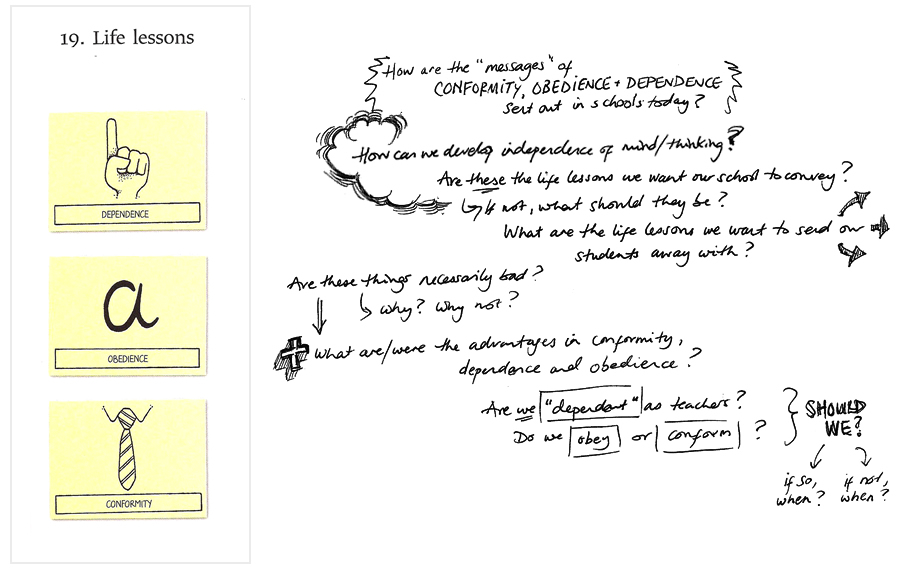 19. Life lessons
DEPENDENCE
a
OBEDIENCE
CONFORMITY
How are the "messages" of
CONFORMITY, OBEDIENCE + DEPENDENCE
sent out in schools today?
How can we develop independence of mind/thinking?
Are these the life lessons we want our school to convey?
If not, what should they be?
What are the life lessons we want to send our
students away with?
Are these things necessarily bad?
Why? Why not?
What are/were the advantages in conformity,
dependence and obedience?
Are we "dependent" as teachers?
Do we obey or conform?
SHOULD
WE?
if so,
when?
if not,
when?